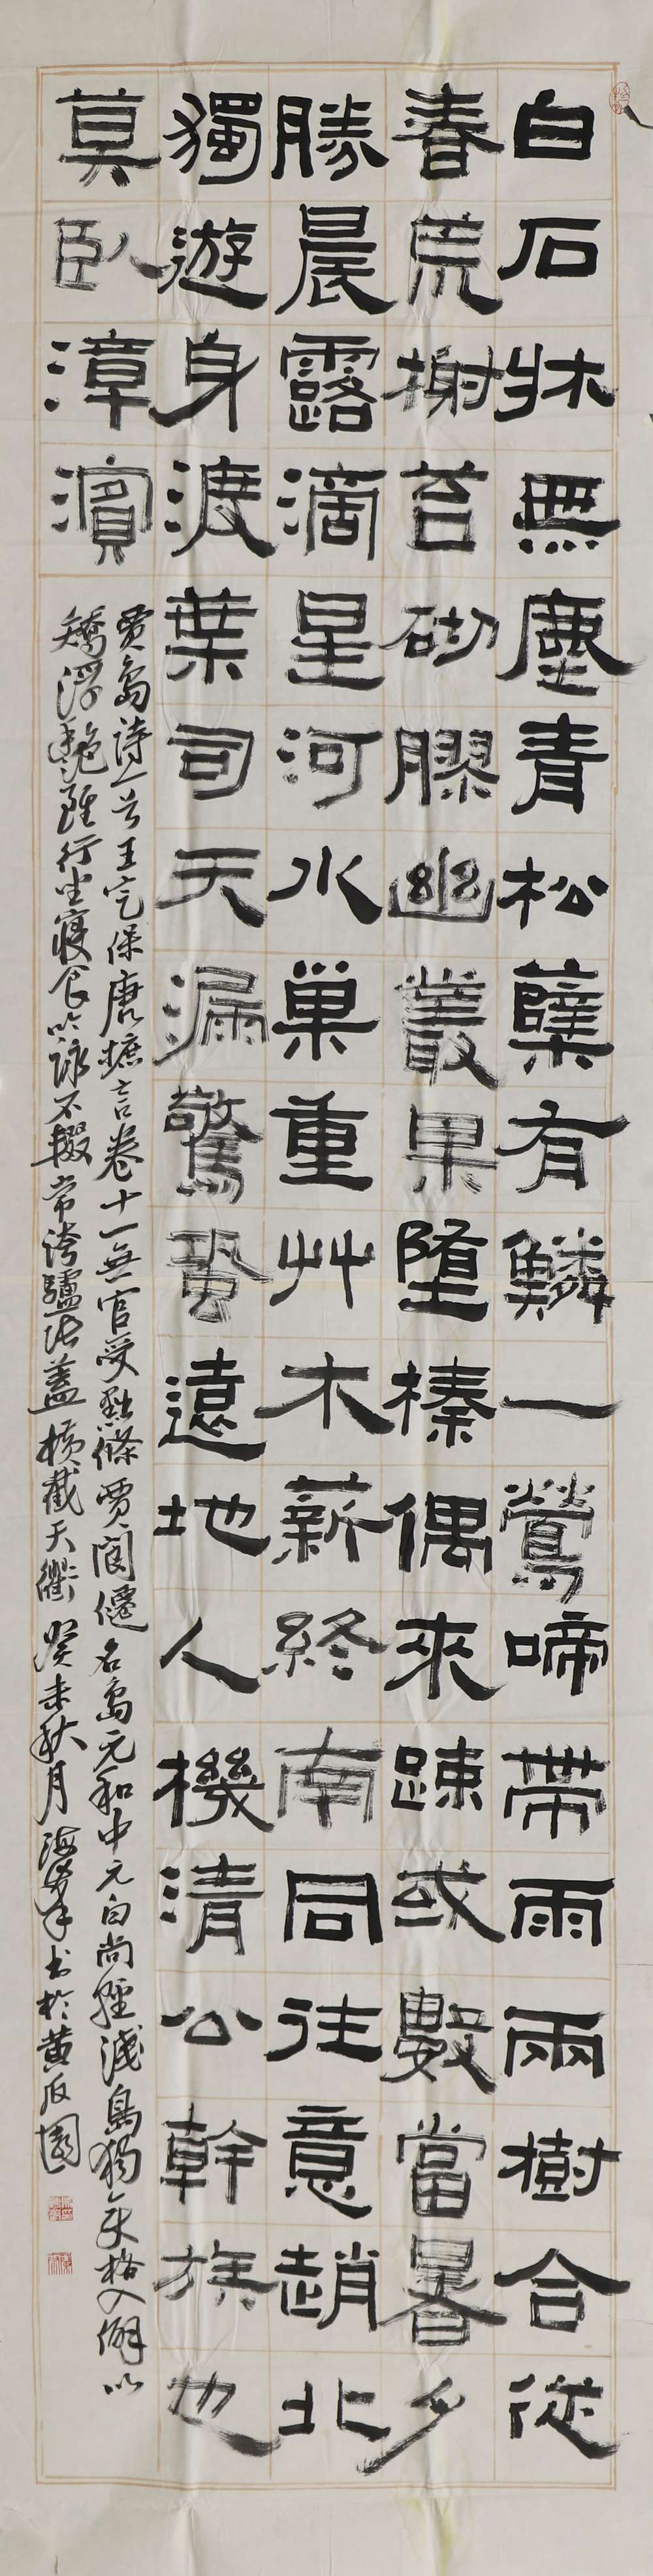 白石牀無塵青松蘖有鱗一鶯啼帶雨兩樹合從
春荒榭苔砌膠幽叢果墮榛偶來疎或數當暑夕
勝晨露滴星河水巢重艸木薪終南同往意趙北
獨遊身渡葉司天漏驚蛩遠地人機清公幹族也
莫臥漳濱
賈島詩一首王定保唐摭言卷十一無官受黜條賈閬僊名島元和中元白尚輕淺島獨變格入僻以
矯浮艷雖行坐寢食吟詠不輟常跨驢張蓋橫截天衢癸未秋月海峯書於黃辰園